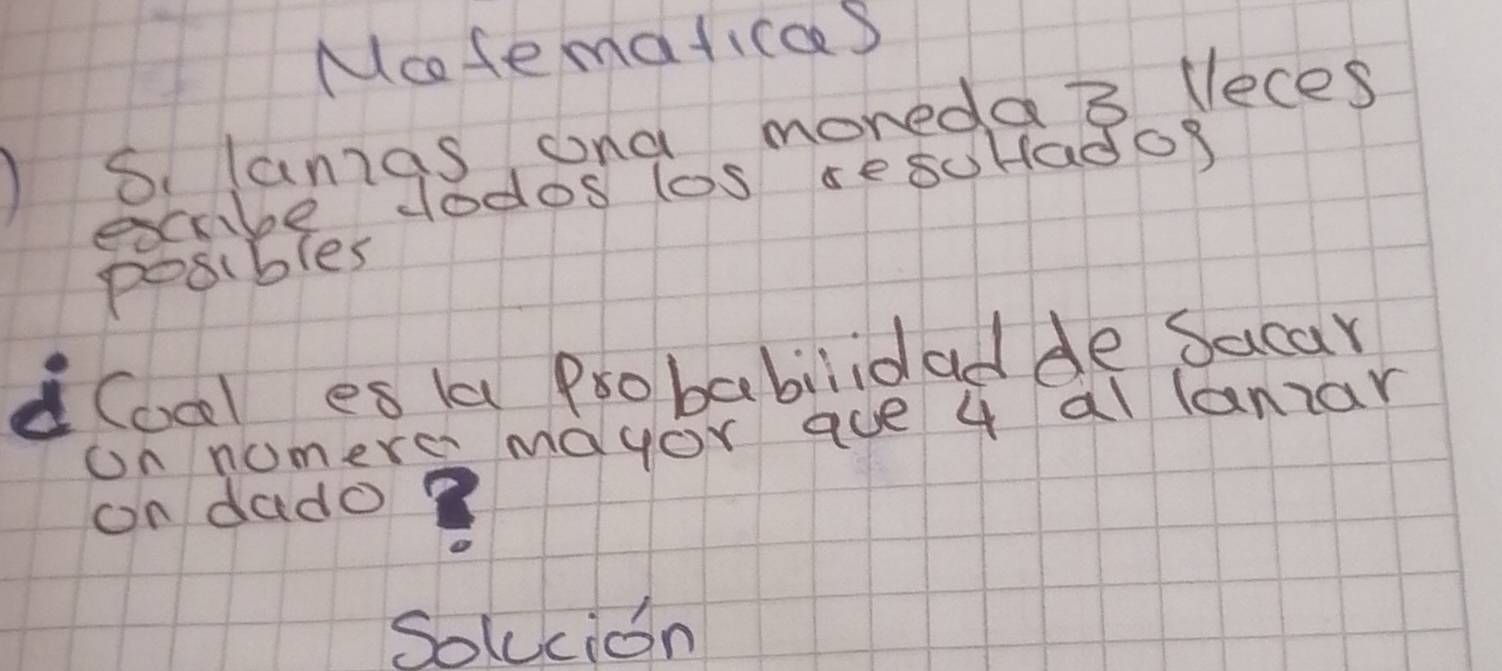 Matematicas
) Si lanzas una moneda 3 Veces
escribe todos los resultados
posibles
¿Cual es la Probabilidad de Sacar
un numero mayor que 4 al lanzar
un dado?
Solución